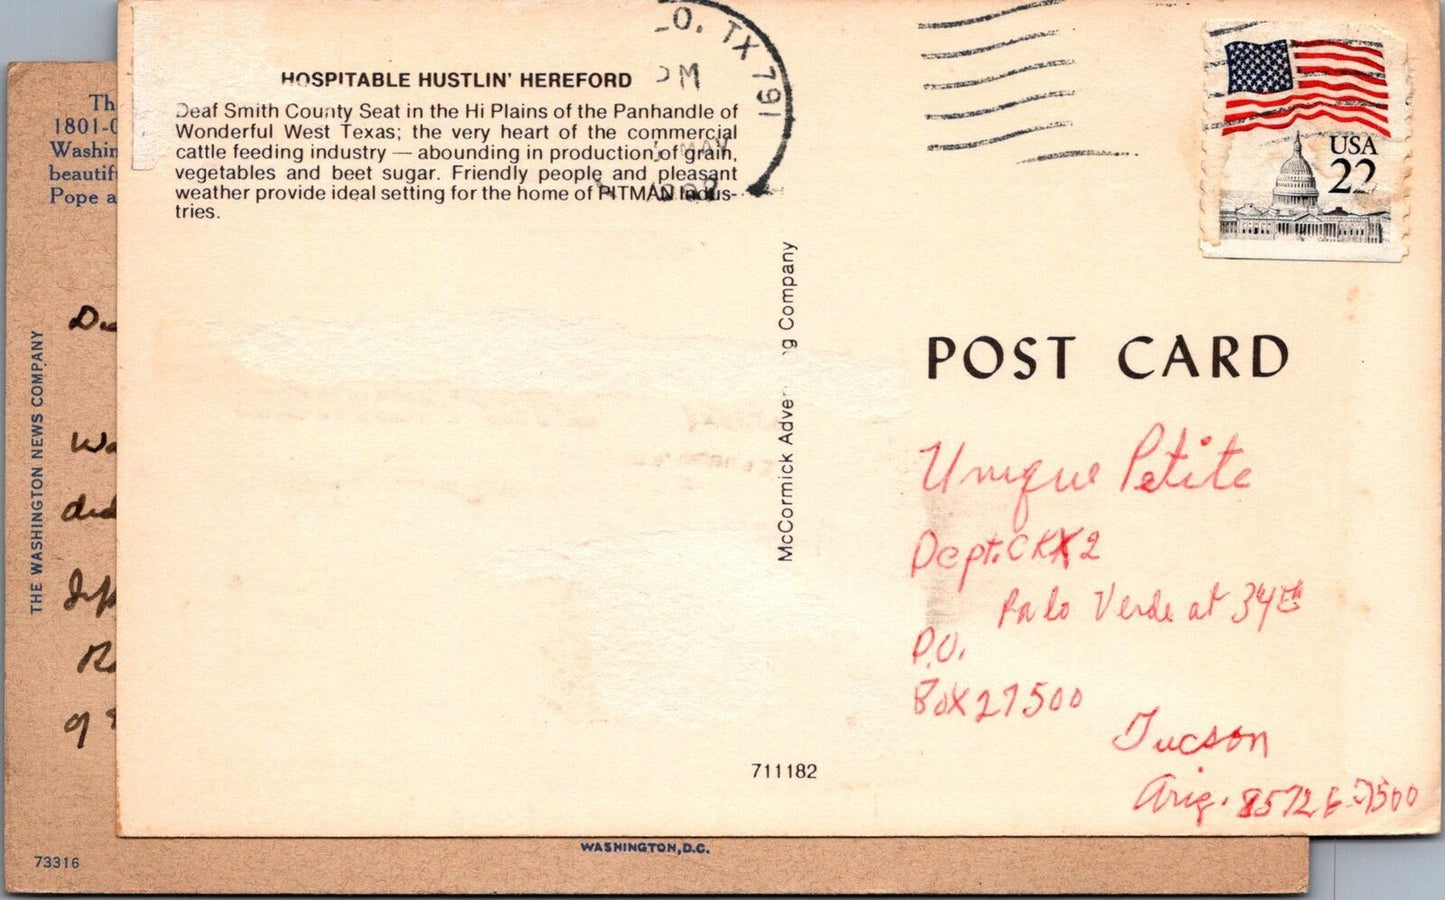 HOSPITABLE HUSTLIN' HEREFORD
Deaf Smith County Seat in the Hi Plains of the Panhandle of
Wonderful West Texas; the very heart of the commercial
cattle feeding industry — abounding in production of grain,
vegetables and beet sugar. Friendly people and pleasant
weather provide ideal setting for the home of PITMAN Indus-
tries.
O, TX 791
PM
MAY
USA
22
McCormick Adve g Company
POST CARD
Unique Petite
Dept. CKX2
Palo Verde at 34th
P.O.
Box 27500
Tucson
Ariz. 85726-7500
711182
Th
1801-0
Washin
beautif
Pope a
THE WASHINGTON NEWS COMPANY
De
Wa
did
Jeff
R
of
WASHINGTON, D.C.
73316